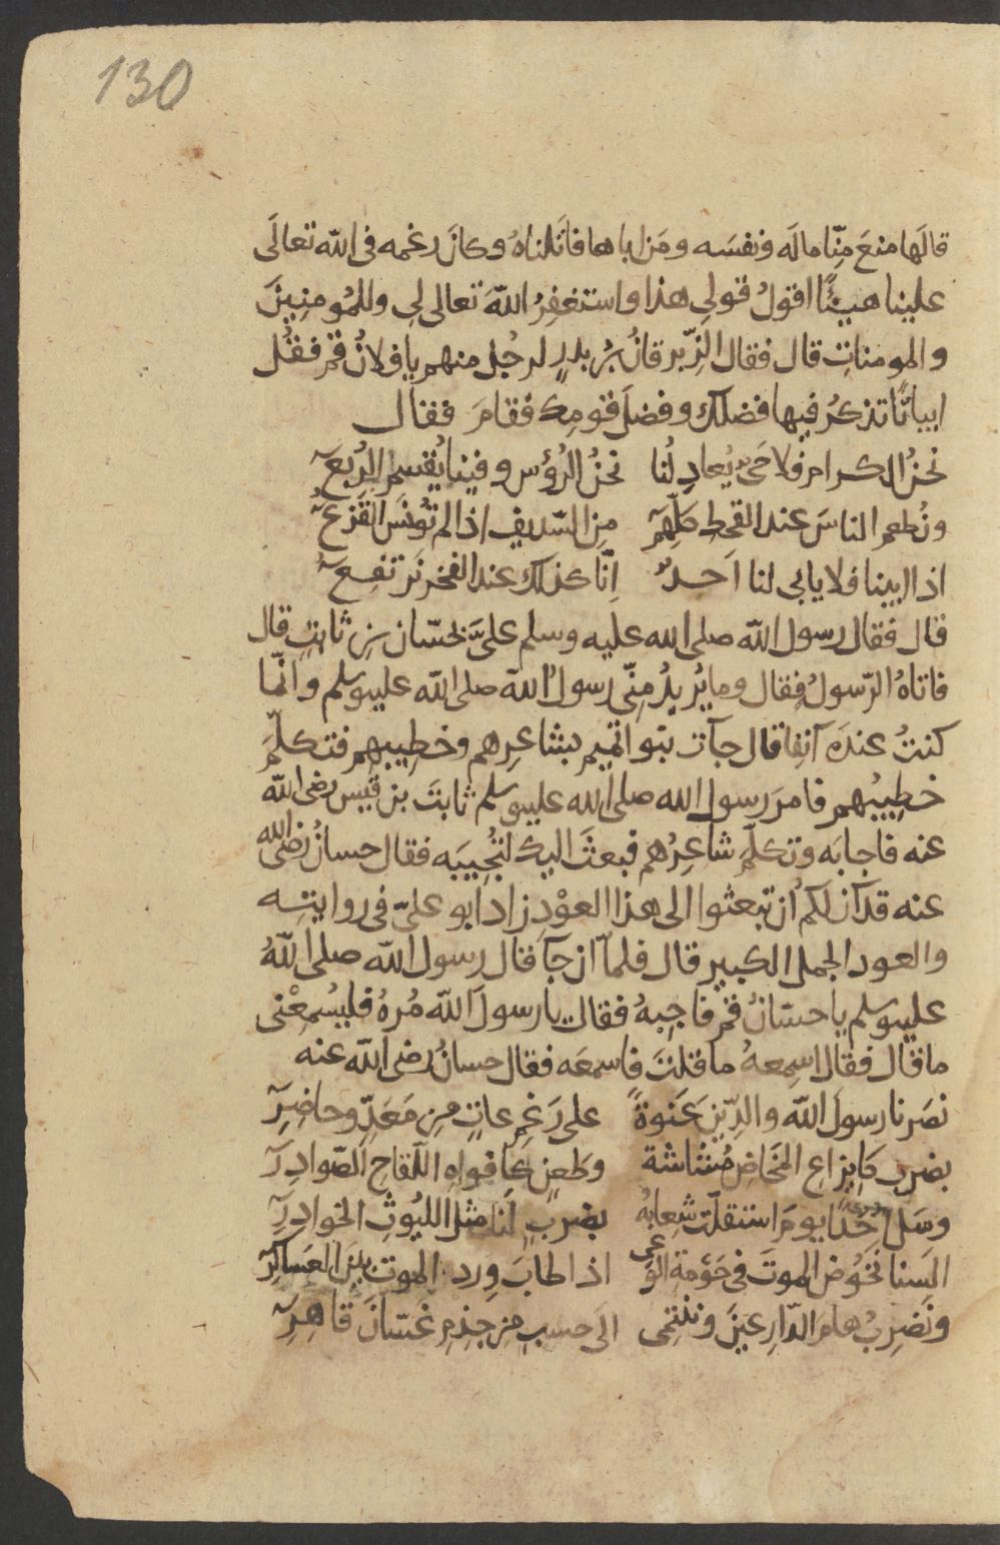 130
قالَها منعَ مِنّا مالَه ونفسَه ومَن اباها قاتَلناهُ وكانَ رغمه فى الله تعالَى
علينا هيّنًا اقولُ قولى هذا واستغفِرُ اللهَ تعالى لى وللمُومنِينَ
والمومناتِ قال فقال الزِّبرقانُ بنُ بدرٍ لرجُلٍ منهم يا فلانُ قم فقُل
ابياتًا تذكرُ فيها فضلك وفضلَ قومِك فقامَ فقال
نحنُ الكرام فلا حَىٌّ يُعادِلُنا نحنُ الرُؤس وفينا يُقسم الرُبعَ
ونُطعم الناسَ عند القحط كلِّهم مِن السّديف اذا لم تُونَس القَزعُ
اذا ابينا فلا يابى لنا اَحدٌ اِنّا كذلك عند الفخر نَرتفعَ
قال فقال رسول الله صلى الله عليه وسلم علىَّ بحسّان بنِ ثابتٍ قال
فاتاهُ الرّسولُ فقال وما يُريدُ مِنّى رسولُ الله صلى الله عليه وسلم وانّما
كنتُ عندَه آنِفا قال جآت بنوا تميم بشاعِرهم وخطِيبِهم فتكلّمَ
خطِيبُهم فامرَ رسول الله صلى الله عليه وسلم ثابتَ بن قيس رضى الله
عنه فاجابَه وتكلّم شاعِرُهم فبعثَ اليك لتُجِيبَه فقال حسانُ رضى الله
عنه قد آن لكم اَن تبعثوا الى هذا العوْدِ زاد ابو علىّ فى روايتِه
والعود الجمل الكبير قال فلمّا ان جآ قال رسول الله صلى اللهُ
عليه وسلم يا حسّانُ قم فاجِبهُ فقال يا رسولَ الله مُرهُ فليُسْمِعْنى
ما قال فقال اسمِعهُ ما قلتَ فاسمعَه فقال حسانُ رضى الله عنه
نصَرنا رسولَ الله والدِّينِ عَنوةً على رَغمِ عاتٍ مِن مَعَدّ وحاضِرِ
بضربٍ كاِيزاع المَخاضِ مُشاشة وطَعنٍ كافواهِ اللّقاحِ الصّوادِرِ
وسَل اُحُدًا يومَ استقلّت شِعابهُ بضربٍ لنا مثل الليُوثِ الخوادِرِ
اَلسنا نَخوُض الموتَ فى حَوْمة الوغى اذا طابَ وِرد الموت بينَ العَساكِرِ
ونَضرِبُ هامَ الدّارِعينَ وننتمى الى حسبٍ مِن جِذمِ غسّانَ قاهِرِ